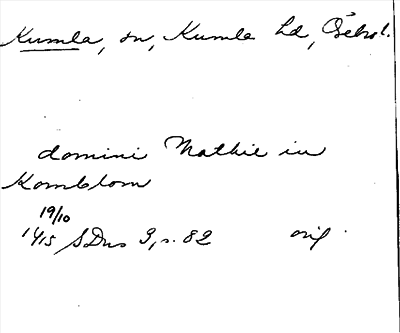 Kumla, sn, Kumla hd, Örebro l.
domini Mathie in
Komblom
19/10
1415 SDns 3, s. 82 orig.